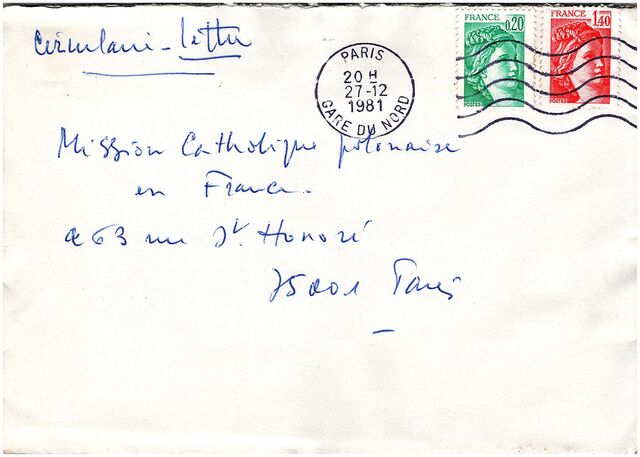 Circulaire - letter
FRANCE 0,20
POSTES
FRANCE 1,40
POSTES
PARIS
20 H
27-12
1981
GARE DU NORD
Mission Catholique polonaise
en France
263 rue St Honoré
75001 Paris